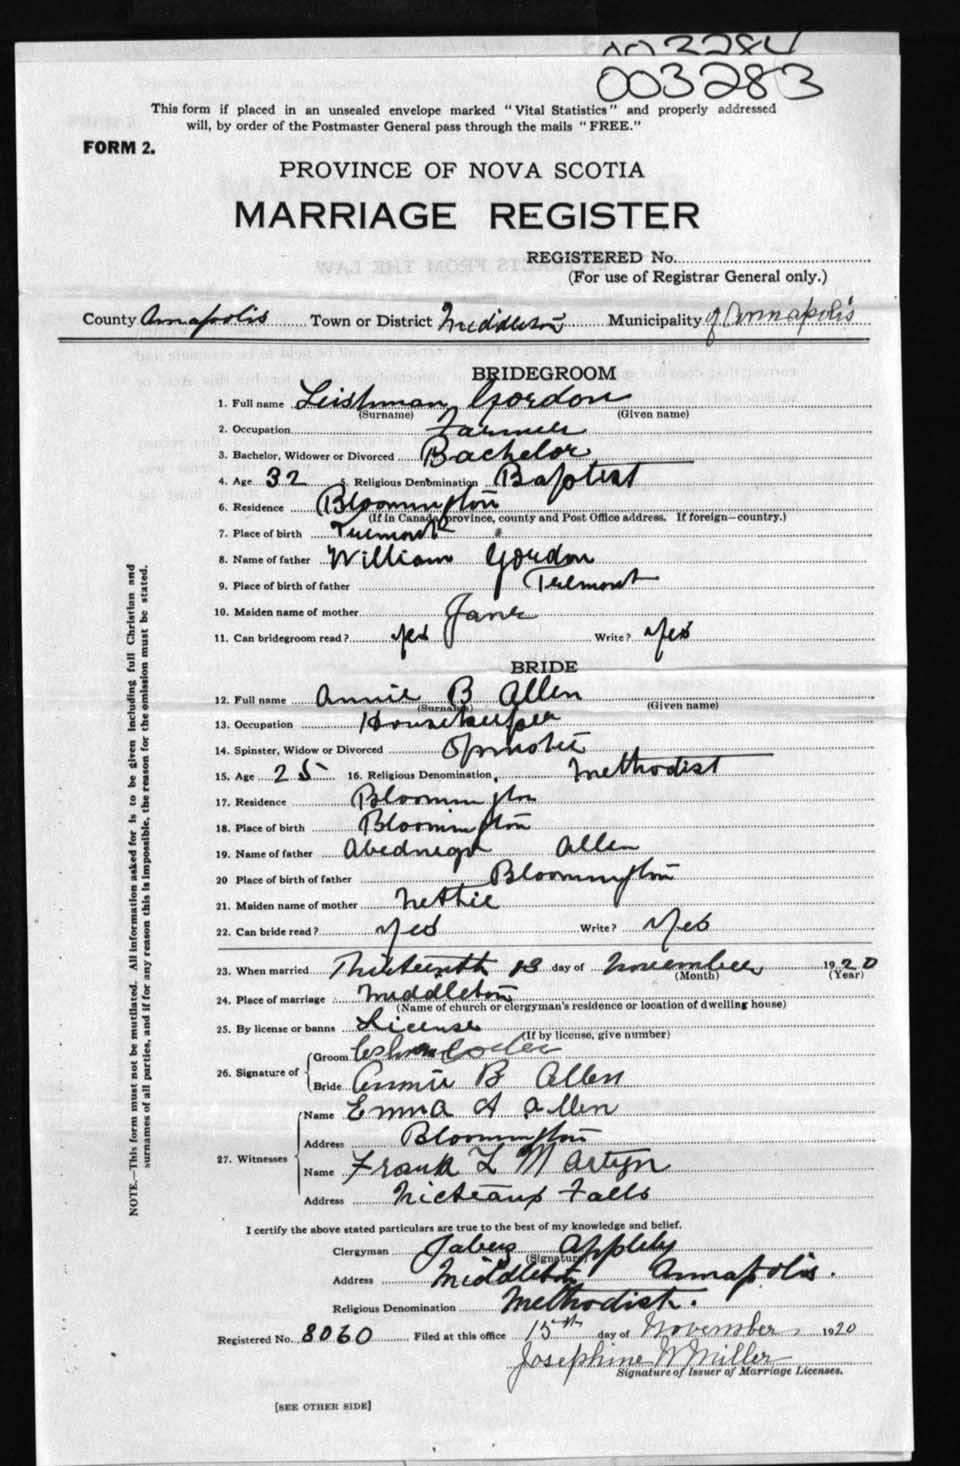 003284
003283
This form if placed in an unsealed envelope marked "Vital Statistics" and properly addressed
will, by order of the Postmaster General pass through the mails "FREE."
FORM 2.
PROVINCE OF NOVA SCOTIA
MARRIAGE REGISTER
REGISTERED No.
(For use of Registrar General only.)
County Annapolis Town or District Middleton Municipality of Annapolis
BRIDEGROOM
1. Full name Leishman Gordon
(Surname) (Given name)
2. Occupation Farmer
3. Bachelor, Widower or Divorced Bachelor
4. Age 32 5. Religious Denomination Baptist
6. Residence Bloomington
(If in Canada, province, county and Post Office address. If foreign—country.)
7. Place of birth Tremont
8. Name of father William Gordon
9. Place of birth of father Tremont
10. Maiden name of mother Jane
11. Can bridegroom read? yes Write? Yes
BRIDE
12. Full name Annie B Allen
(Surname) (Given name)
13. Occupation Housekeeper
14. Spinster, Widow or Divorced
15. Age 25 16. Religious Denomination Methodist
17. Residence Bloomington
18. Place of birth Bloomington
19. Name of father Abednego Allen
20 Place of birth of father Bloomington
21. Maiden name of mother Nettie
22. Can bride read? Yes Write? Yes
23. When married Thirteenth 13 day of November 1920
(Month) (Year)
24. Place of marriage Middleton
(Name of church or clergyman's residence or location of dwelling house)
25. By license or banns License
(If by license, give number)
26. Signature of
Groom
Bride Annie B Allen
27. Witnesses
Name Emma A Allen
Address Bloomington
Name Frank L Martyn
Address Nicteaux Falls
I certify the above stated particulars are true to the best of my knowledge and belief.
Clergyman Jabez Appleby
(Signature)
Address Middleton Annapolis.
Religious Denomination Methodist.
Registered No. 8060 Filed at this office 15th day of November 1920
Josephine W Miller
Signature of Issuer of Marriage Licenses.
[SEE OTHER SIDE]
NOTE.—This form must not be mutilated. All information asked for is to be given including full Christian and
surnames of all parties, and if for any reason this is impossible, the reason for the omission must be stated.